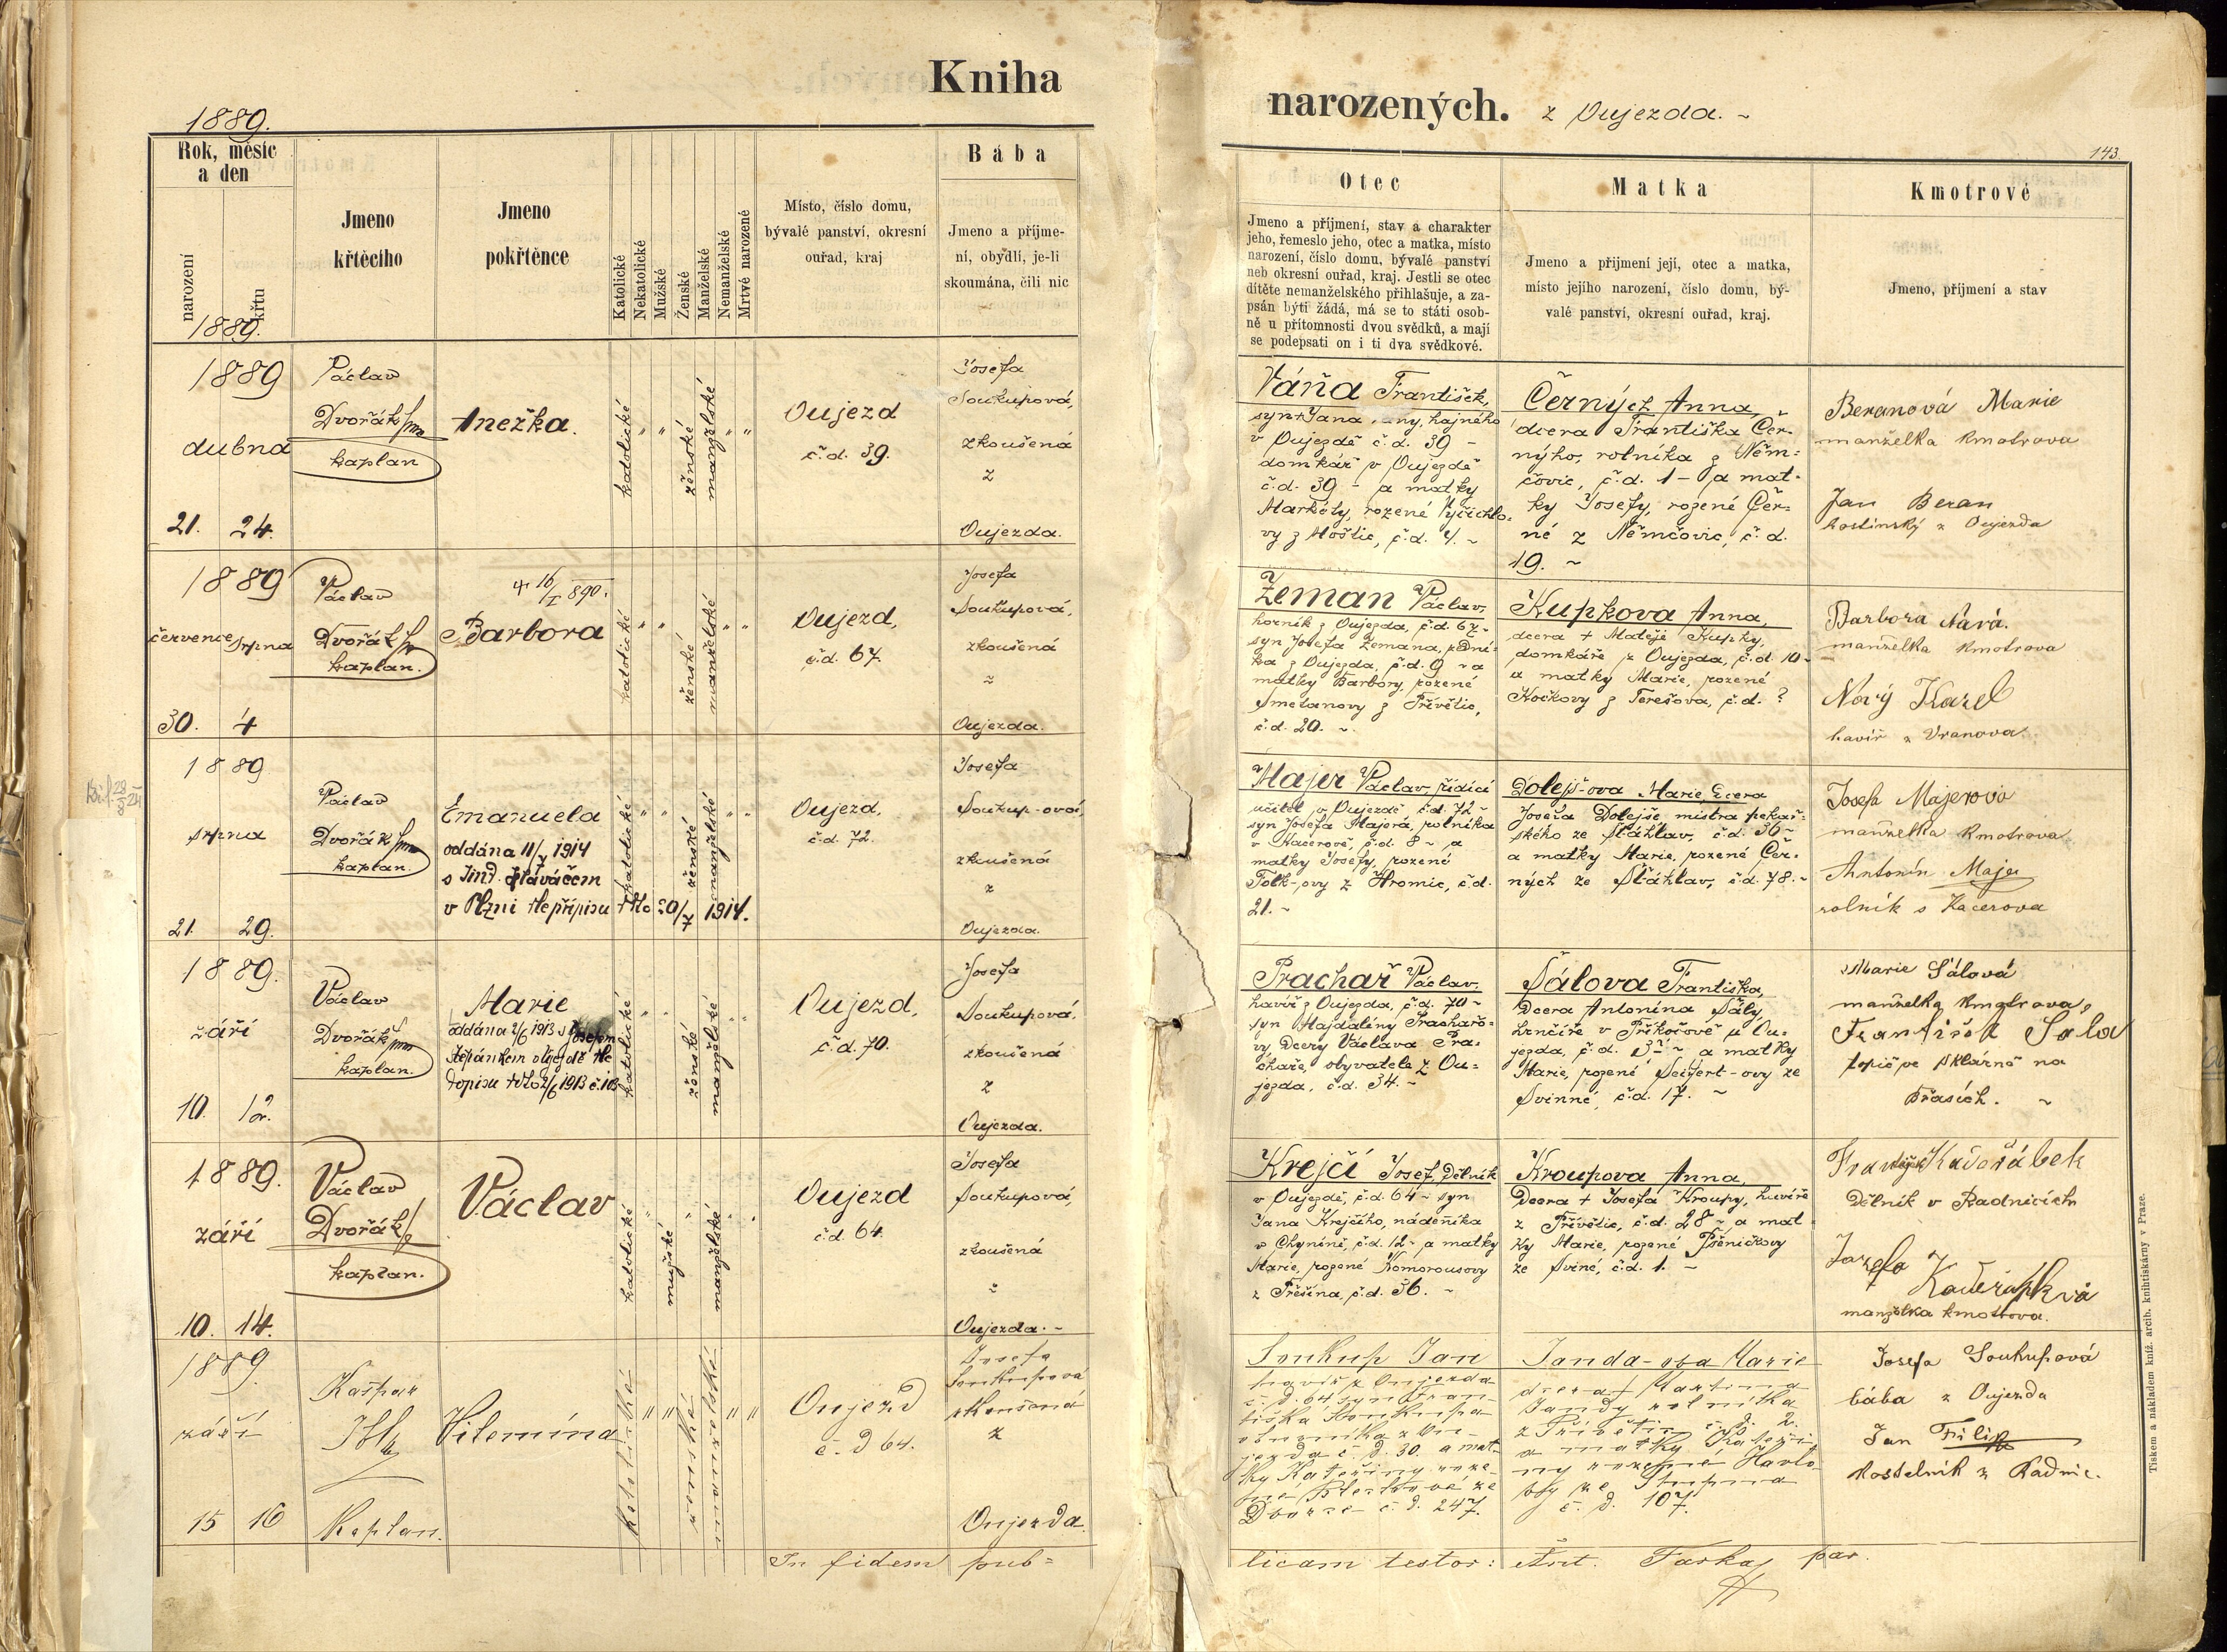 Kniha
narozených. z Oujezda. ~
1889.
143.
Rok, měsíc
a den
narození
křtu
1889.
Jmeno
křtěcího
Jmeno
pokřtěnce
Katolické
Nekatolické
Mužské
Ženské
Manželské
Nemanželské
Mrtvé narozené
Místo, číslo domu,
bývalé panství, okresní
ouřad, kraj
Bába
Jmeno a příjme-
ní, obydlí, je-li
skoumána, čili nic
Otec
Jmeno a příjmení, stav a charakter
jeho, řemeslo jeho, otec a matka, místo
narození, číslo domu, bývalé panství
neb okresní ouřad, kraj. Jestli se otec
dítěte nemanželského přihlašuje, a za-
psán býti žádá, má se to státi osob-
ně u přítomnosti dvou svědků, a mají
se podepsati on i ti dva svědkové.
Matka
Jmeno a přijmení její, otec a matka,
místo jejího narození, číslo domu, bý-
valé panství, okresní ouřad, kraj.
Kmotrové
Jmeno, příjmení a stav
1889
dubna
21. 24.
Václav
Dvořák
kaplan
Anežka.
katolické
" "
ženské
manželské
" "
Oujezd
č.d. 39.
Josefa
Soukupová,
zkoušená
z
Oujezda.
Váňa František,
syn + Jana hajného
v Oujezdě č.d. 39 -
domkář v Oujezdě
č.d. 39 - a matky
Markéty, rozené
vy z Hoštic, č.d. 4. ~
Černých Anna,
dcera Františka Čer-
nýho, rolníka z Něm-
čovic, č.d. 1 - a mat-
ky Josefy, rozené Čer-
né z Němčovic, č.d.
19. ~
Beranová Marie
manželka kmotrova
Jan Beran
hostinský z Oujezda
1889
července srpna
30. 4
Václav
Dvořák
kaplan.
+ 16/I 890.
Barbora
katolické
" "
ženské
manželské
" "
Oujezd,
č.d. 67.
Josefa
Soukupová,
zkoušená
z
Oujezda.
Zeman Václav,
horník z Oujezda, č.d. 67 -
syn Josefa Zemana,
ka z Oujezda, č.d. 9 - a
matky Barbory, rozené
Smetanovy z Přívětic,
č.d. 20. ~
Kupkova Anna,
dcera + Matěje Kupky,
domkáře z Oujezda, č.d. 10 -
a matky Marie, rozené
Kočkovy z Terešova, č.d. ?
Barbora
manželka kmotrova
Nový Karel
havíř z Vranova
1889
srpna
21. 29.
Václav
Dvořák
kaplan.
Emanuela
oddána 11/7 1914
s Jind. Hlaváčem
v Plzni dle přípisu
dto 20/7 1914.
katolické
" "
ženské
manželské
" "
Oujezd,
č.d. 72.
Josefa
Soukup-ová,
zkoušená
z
Oujezda.
Majer Václav, řídící
učitel v Oujezdě č.d. 72 -
syn Josefa Majera, rolníka
v Kacerově, č.d. 8 - a
matky Josefy, rozené
Folk-ovy z Hromic, č.d.
21. ~
Dolejš-ova Marie, dcera
Josefa Dolejše mistra pekař-
ského ze Šťáhlav, č.d. 36 -
a matky Marie, rozené Čer-
ných ze Šťáhlav, č.d. 78. -
Josefa Majerova
manželka kmotrova
Antonín Majer
rolník z Kacerova
1889.
září
10. 12.
Václav
Dvořák
kaplan.
Marie
oddána 2/6 1913 s Josefem
Štěpánkem v Oujezdě dle
dopisu dto 2/6 1913
katolické
" "
ženské
manželské
" "
Oujezd,
č.d. 70.
Josefa
Soukupová,
zkoušená
z
Oujezda.
Prachař Václav,
havíř z Oujezda, č.d. 70 -
syn Majdalény Prachařo-
vy dcery Václava Pra-
chaře, obyvatele z Ou-
jezda, č.d. 34. -
Šálova Františka,
dcera Antonína Šály,
hrnčíře v u Ou-
jezda, č.d. a matky
Marie, rozené Seifert-ovy ze
Svinné, č.d. 17. ~
Marie Šálová
manželka kmotrova,
František Šala
topič ve sklárně na
Břasích. ~
1889.
září
10. 14.
Václav
Dvořák
kaplan.
Václav
katolické
"
mužské
"
manželské
" "
Oujezd
č.d. 64.
Josefa
Soukupová,
zkoušená
z
Oujezda. -
Krejčí Josef, dělník
v Oujezdě, č.d. 64 - syn
Jana Krejčího, nádeníka
v Chyníně, č.d. 12 - a matky
Marie, rozené Komorousovy
z Přešína, č.d. 36. ~
Kroupova Anna,
dcera + Josefa Kroupy, havíře
z Přívětic, č.d. 28 - a mat-
ky Marie, rozené Pšeničkovy
ze Sviné, č.d. 1. -
František Kadeřábek
dělník v Radnicích
Jozefa
Kadeřápková
manželka kmotrova.
1889.
září
15 16
Kašpar
Kaplan.
Vilemína
katolické
" "
ženské
manželské
" "
Oujezd
č. d 64.
Josefa
Soukupová
zkoušená
z
Oujezda
Soukup Jan
havíř z Oujezda
č. d. 64 syn Fran-
tiška Soukupa
z Ou-
jezda č. d. 30. a mat-
ky Kateřiny roze-
né ze
Dvorce č. d. 247.
Janda-ova Marie
dcera + Martina
Jandy rolníka
z Přívětic č. d. 2.
a matky Kateři-
ny rozené Havlo-
vy ze Stupna
č. d. 107.
Josefa Soukupová
bába z Oujezda
Jan Filip
kostelník z Radnic.
In fidem pub=
licam testor: Ant. par.
Tiskem a nákladem kníž. arcib. knihtiskárny v Praze.